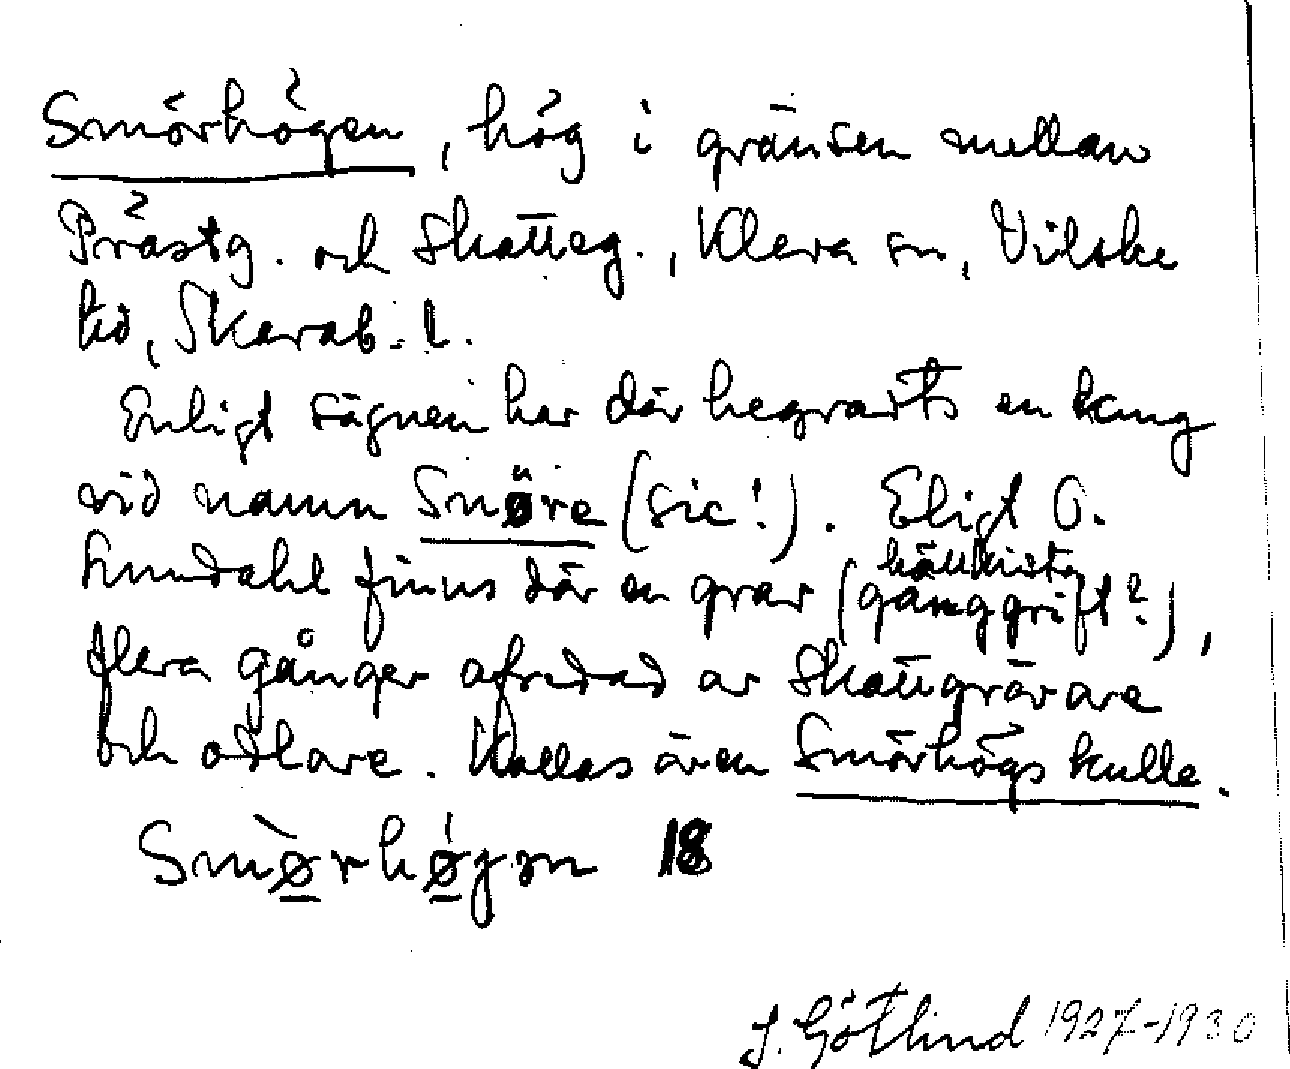 Smörhögen, hög i gränsen mellan
Prästg. och Skatteg., Kleva sn, Vilske
hd, Skarab. l.
Enligt sägnen har där begravts en kung
vid namn Snöre (sic!). Eligt O.
Lundahl finns där en grav (gånggrift?),
hällkista
flera gånger afredad av skattgrävare
och odlare. Kallas även Smörhögs kulle.
Smø̀rhǿgən 18
J. Götlind 1927-1930